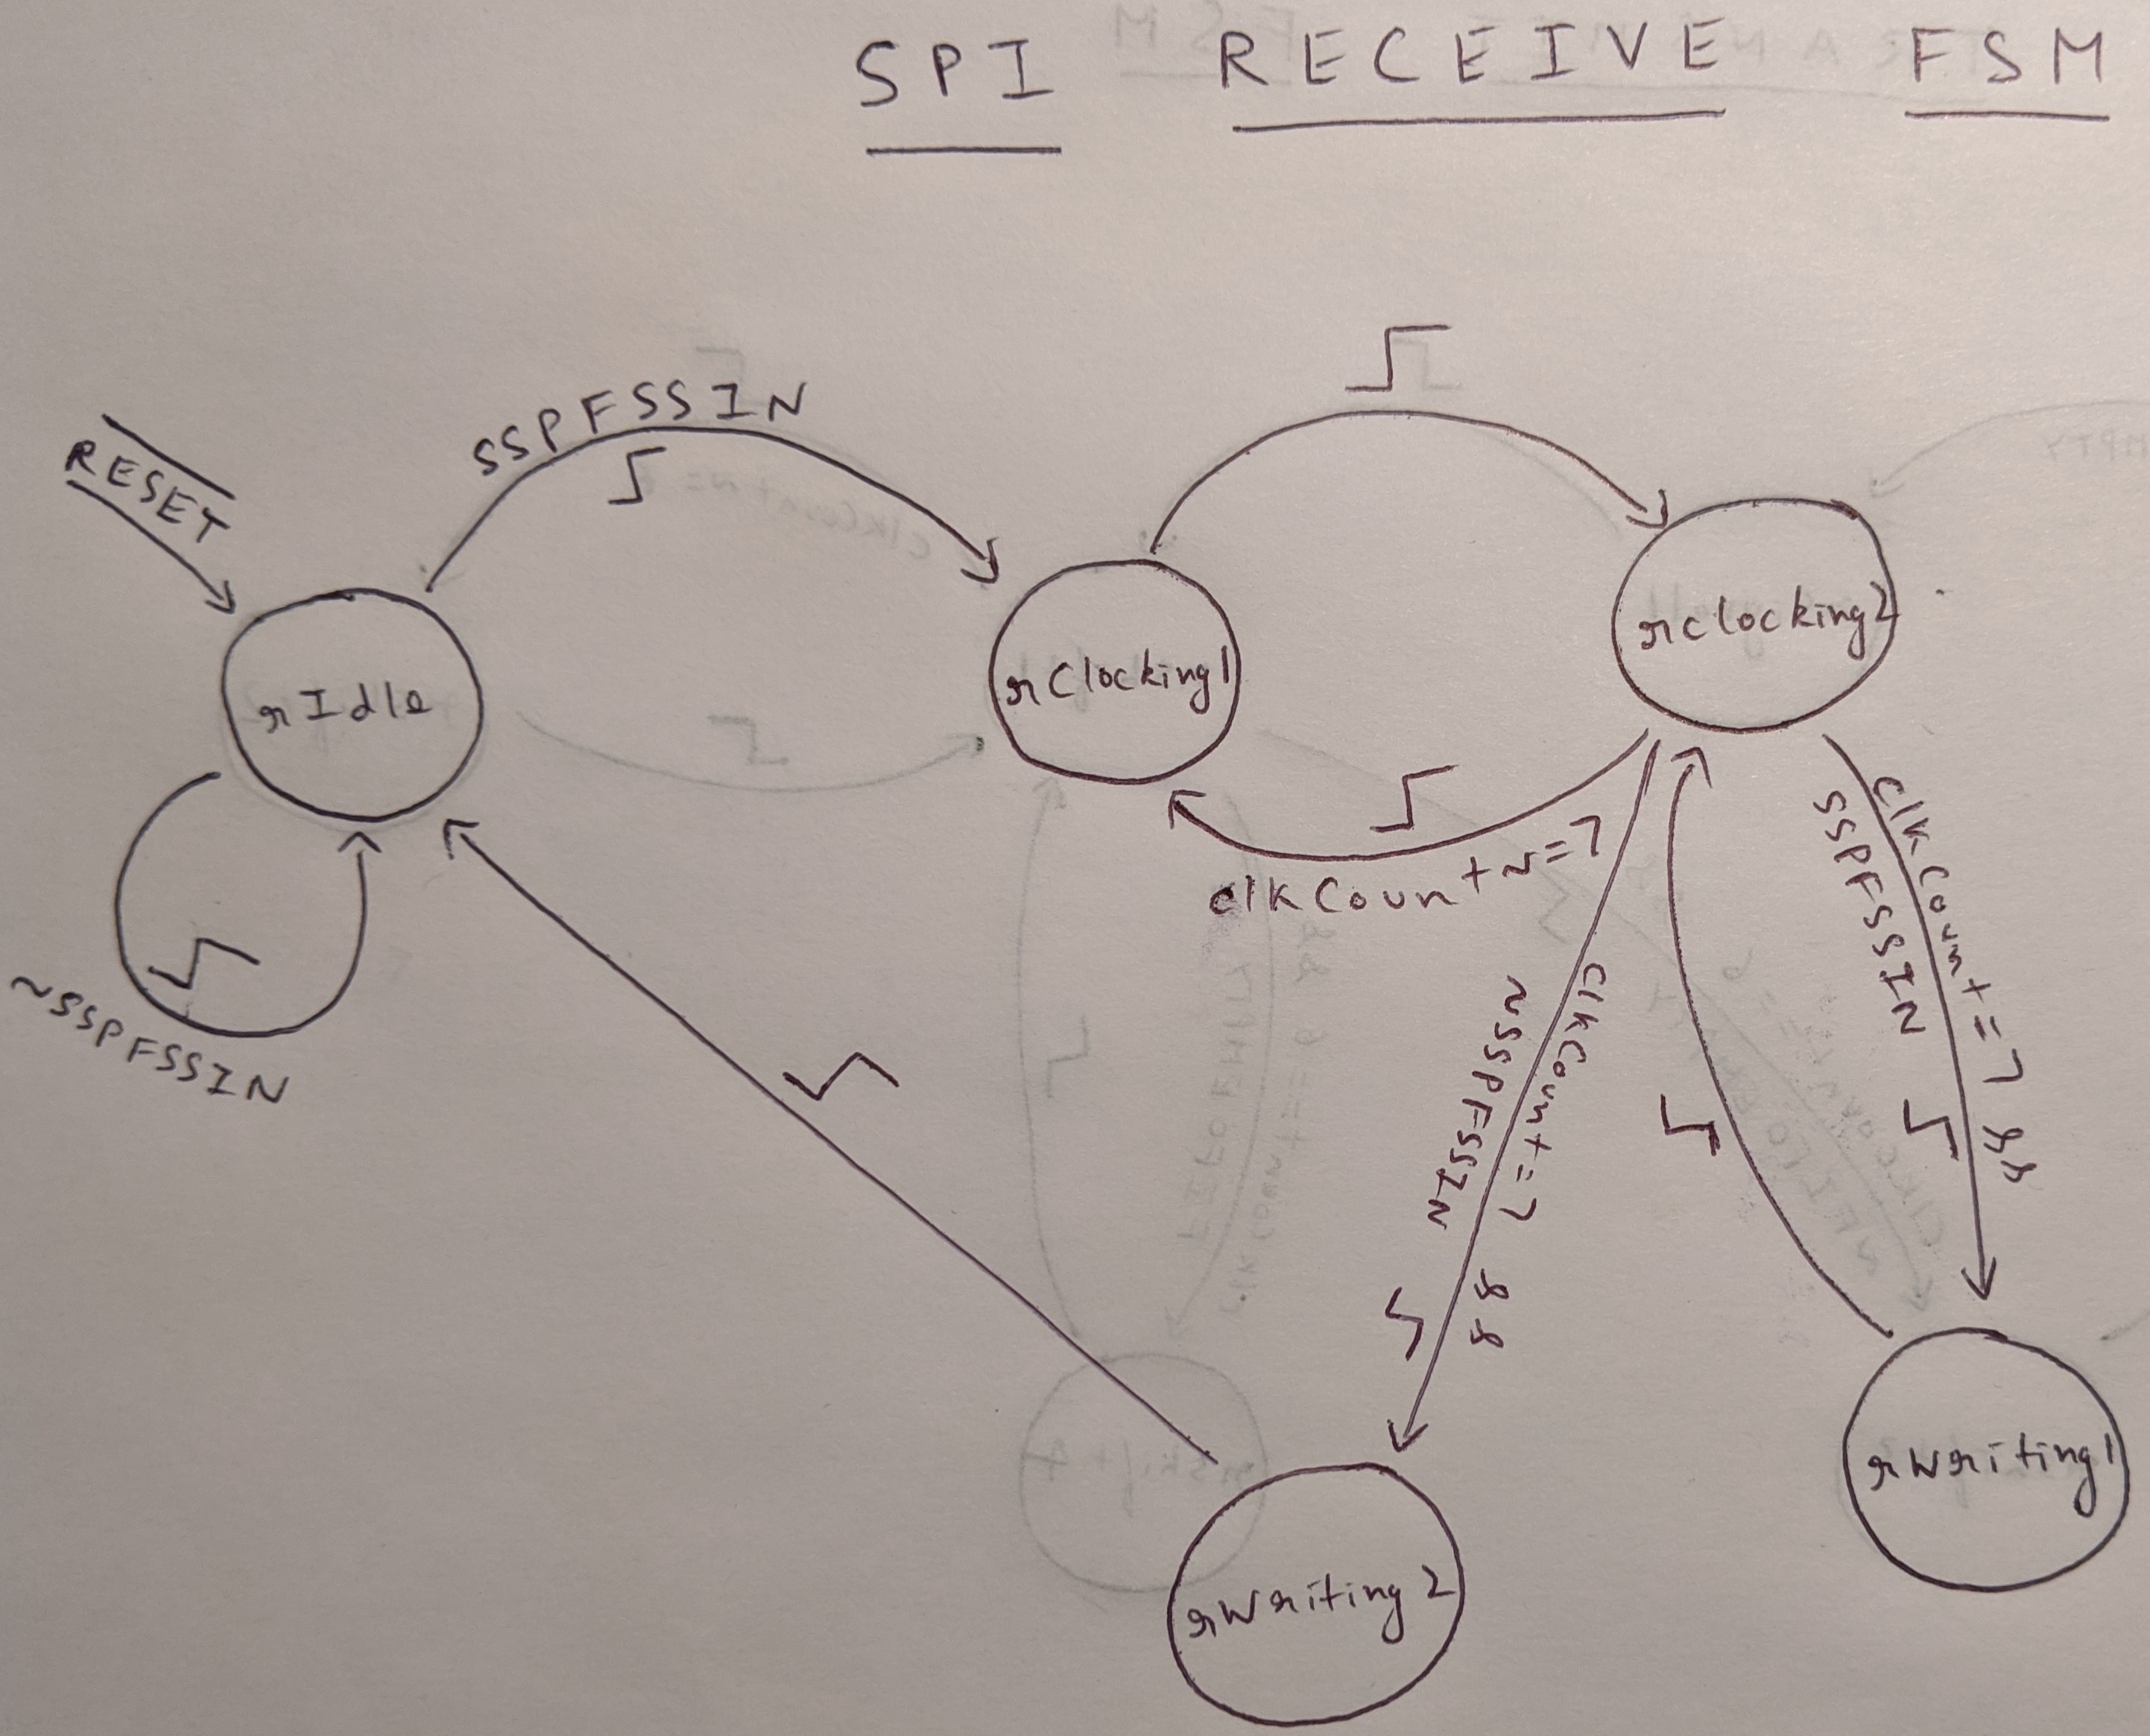 SPI RECEIVE FSM
RESET
SSPFSSIN
rIdle
~SSPFSSIN
rClocking1
rclocking2
clkCount ~=7
clkCount=7 &&
~SSPFSSIN
clkCount=7 &&
SSPFSSIN
rWriting1
rWriting2